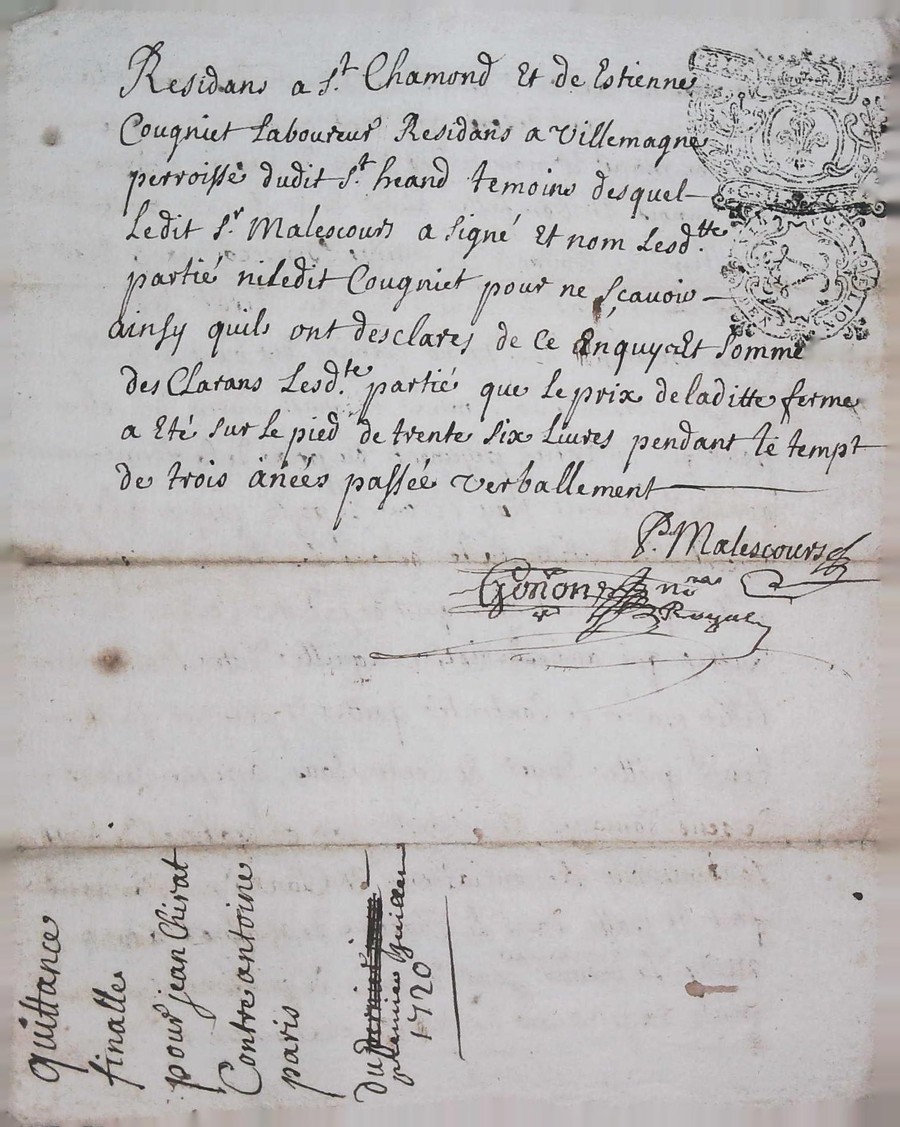 Residans a St. Chamond Et de Estienne
Cougniet Laboureur Residans a Villemagne
perroisse dudit St. heand temoins desquel
Ledit Sr. Malescours a signé Et nom Lesd.tte
partié niledit Cougniet pour ne sçavoir
ainsy quils ont desclares de ce Enquy et somme
des Clarans Lesd.te partié que le prix de laditte ferme
a Eté sur le pied de trente six Livres pendant le tempt
de trois anéés passéé verballement
P. Malescours
Gonon n.re
Royal
quittance
finalle
pour jean Chirat
Contre antoine
paris
du
premier Juillet
1720